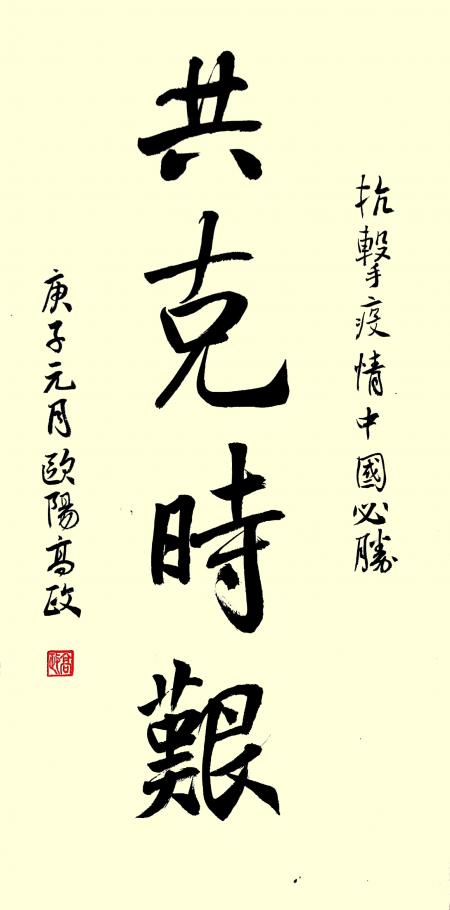 抗擊疫情中國必勝
共克時艱
庚子元月歐陽高政